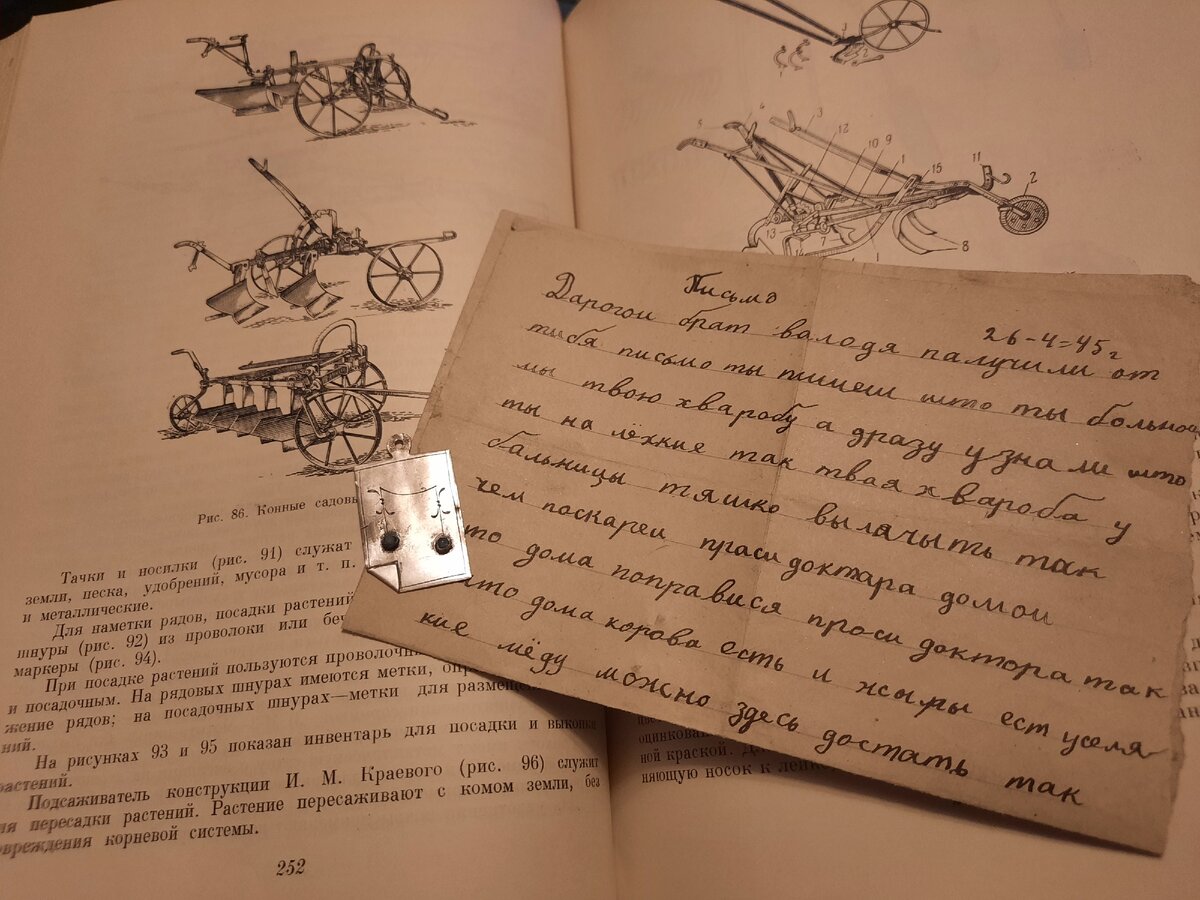 Рис. 86. Конные садовы
Тачки и носилки (рис. 91) служат
земли, песка, удобрений, мусора и т. п.
и металлические.
Для наметки рядов, посадки растений
шнуры (рис. 92) из проволоки или беч
маркеры (рис. 94).
При посадке растений пользуются проволочны
и посадочным. На рядовых шнурах имеются метки, опр
жение рядов; на посадочных шнурах—метки для размеще
ний.
На рисунках 93 и 95 показан инвентарь для посадки и выкопки
растений.
Подсаживатель конструкции И. М. Краевого (рис. 96) служит
ля пересадки растений. Растение пересаживают с комом земли, без
овреждения корневой системы.
252
3
2
1
5
4
3
12
10
9
1
15
11
2
13
7
1
8
Письмо
26-4=45г
Дарогои брат валодя палучили от
тибя писмо ты пишеш што ты больной
мы твою хваробу а дразу узнали што
ты на лёхкие так твая хвароба у
бальницы тяшко вылачыть так
чем поскареи праси доктара домои
то дома поправися проси доктора так
што дома корова есть и жыры ест уселя
кие мёду можно здесь достать так
оцинкован
ной краской. Д
няющую носок к лейк